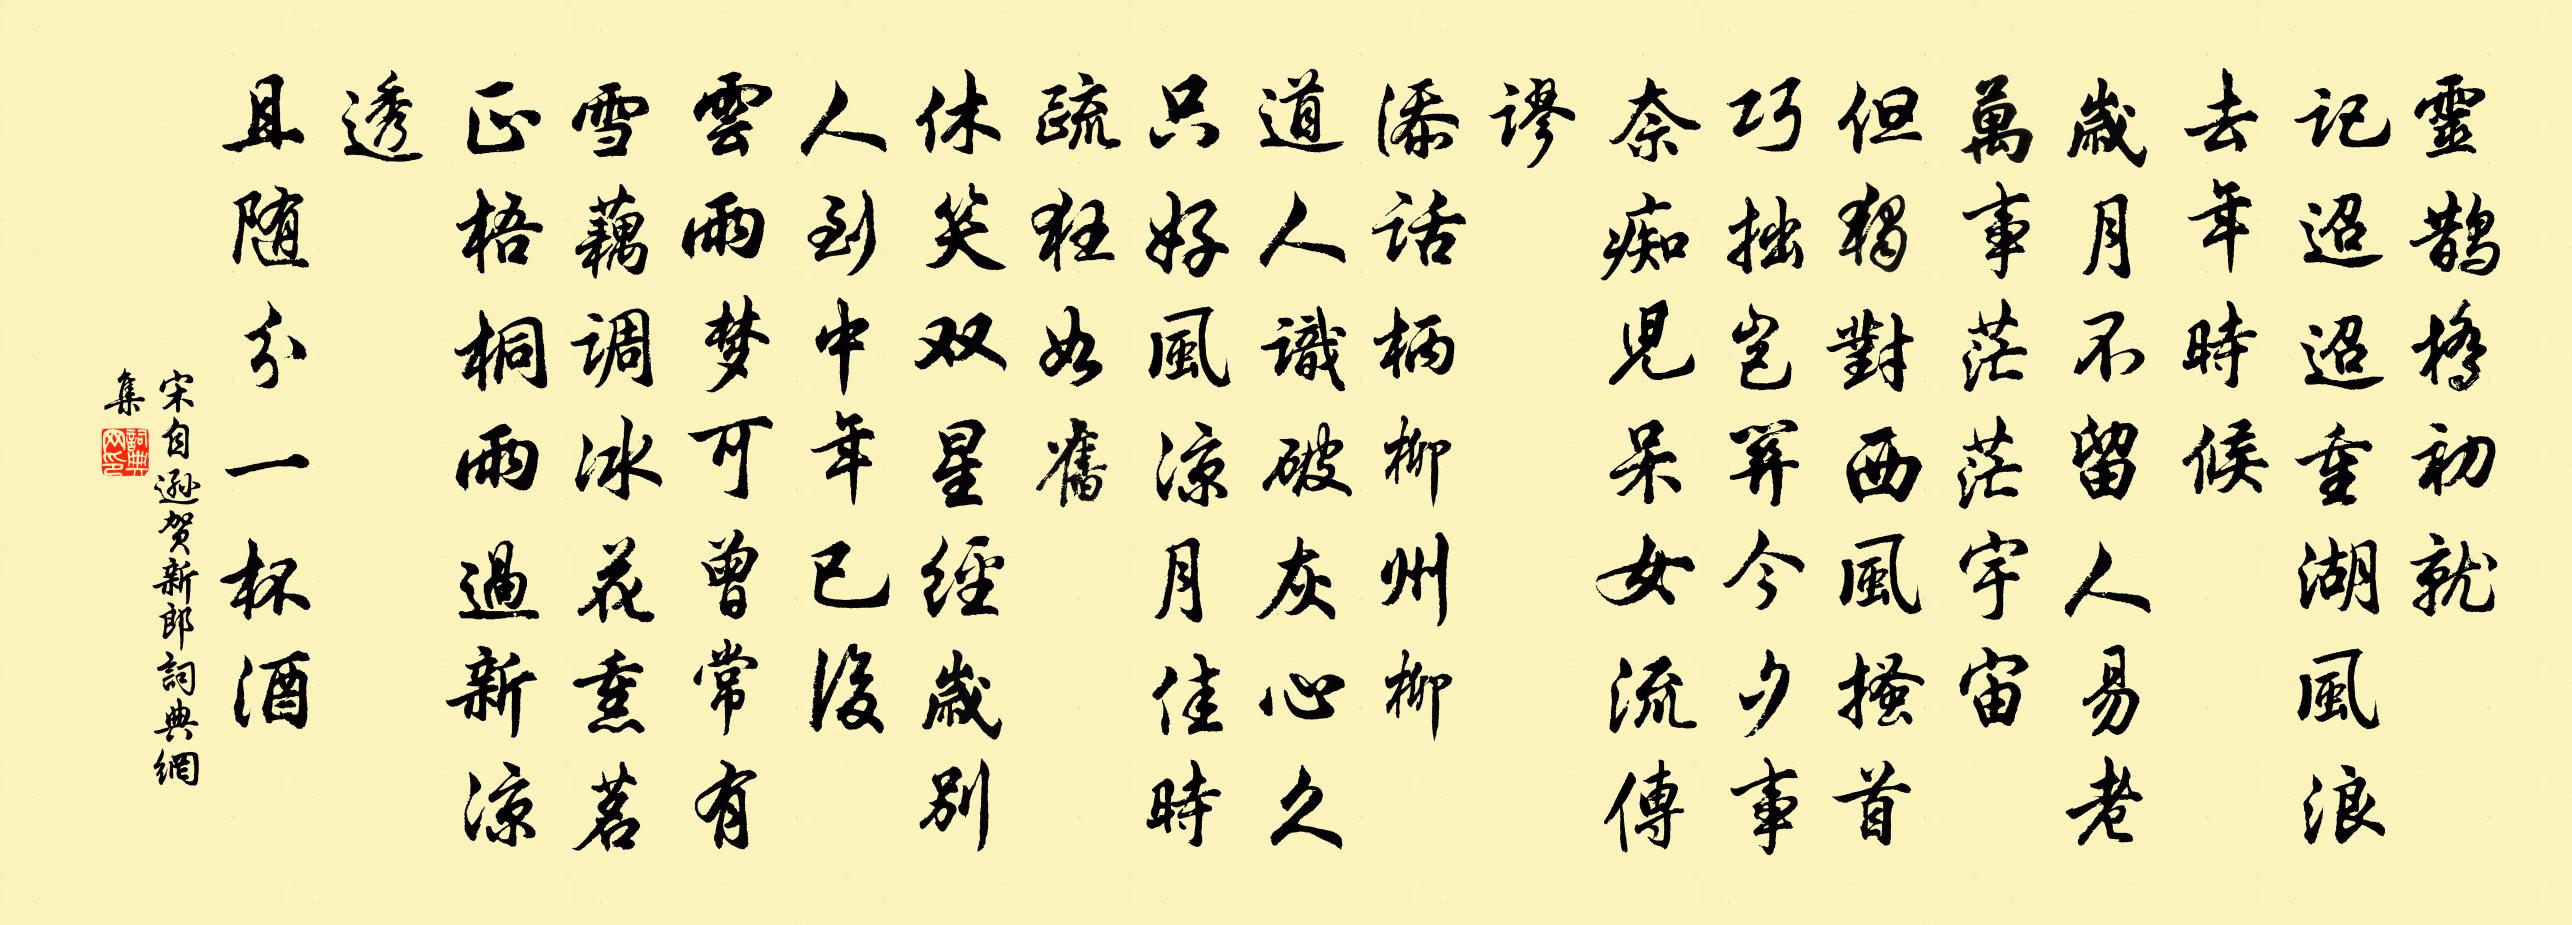 靈鵲橋初就
記迢迢重湖風浪
去年時候
歲月不留人易老
萬事茫茫宇宙
但獨對西風搔首
巧拙豈關今夕事
奈痴兒呆女流傳
謬
添話柄柳州柳
道人識破灰心久
只好風涼月佳時
疏狂如舊
休笑双星經歲別
人到中年已後
雲雨梦可曾常有
雪藕調冰花熏茗
正梧桐雨過新涼
透
且随分一杯酒
宋自遜贺新郎詞典網
集
詞典
网印